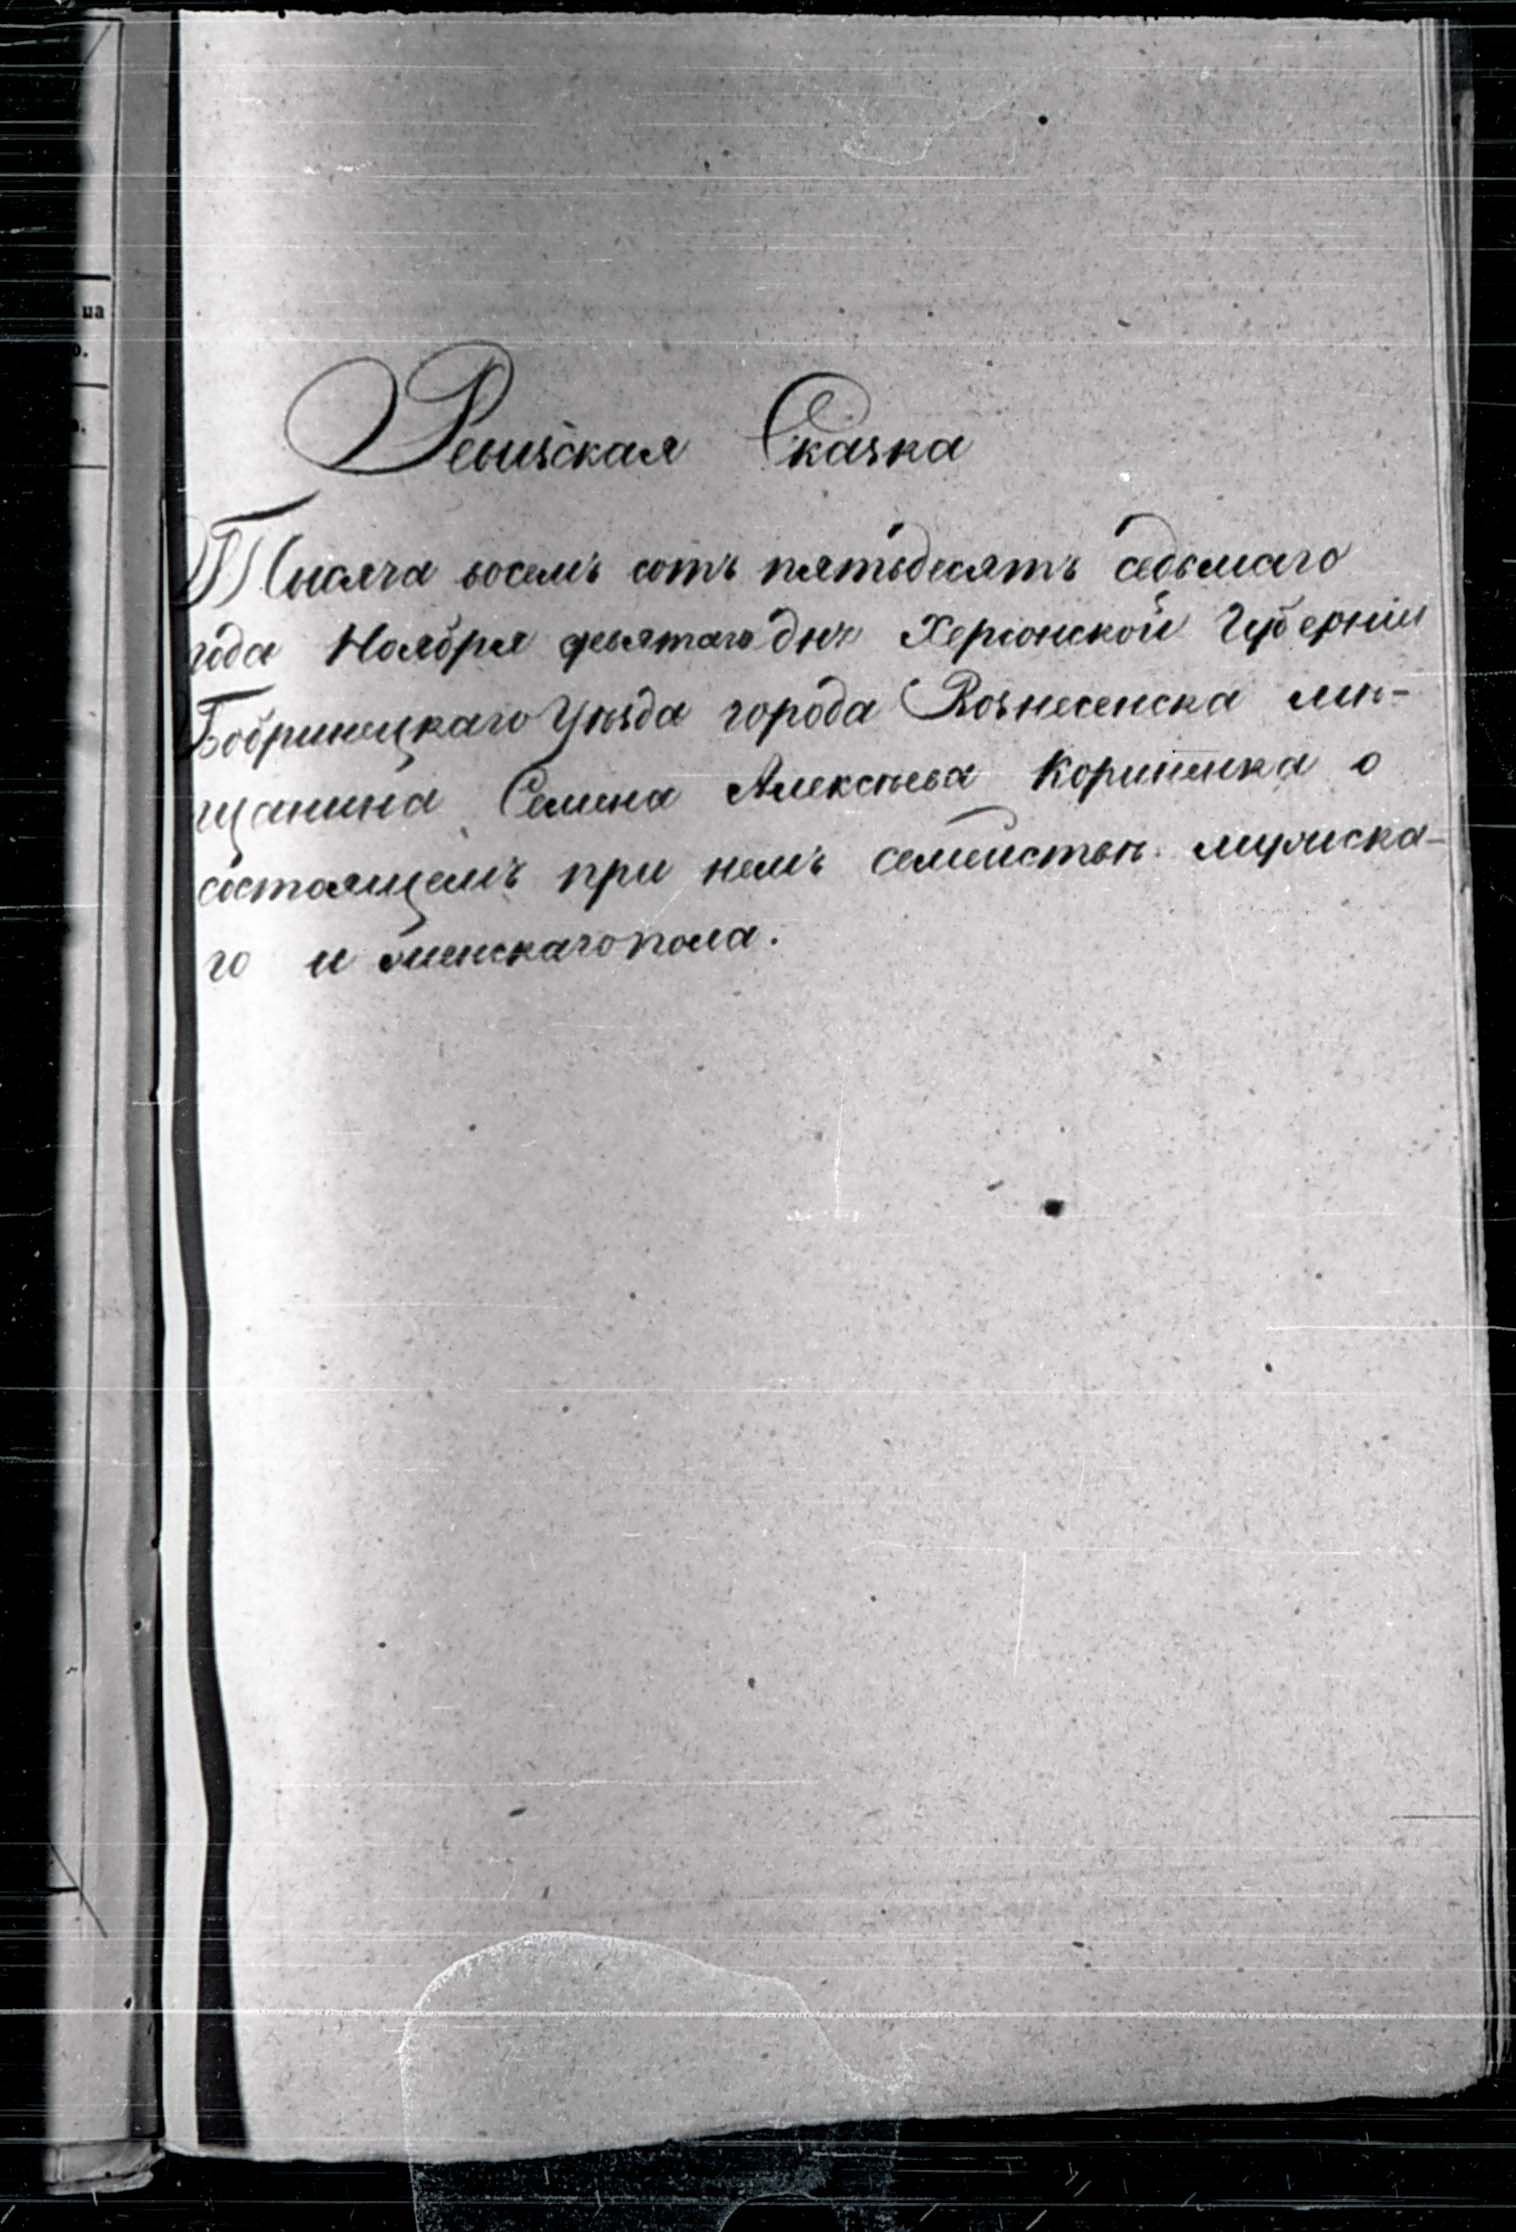 Ревизская Сказка
Тысяча восемъ сотъ пятьдесятъ седьмаго
года Ноября девятаго дня Херсонской Губерніи
Бобринецкаго Уѣзда города Вознесенска мѣ-
щанина Семена Алексѣева Кориненка о
состоящемъ при немъ семействѣ мужска-
го и женскаго пола.
на
о.